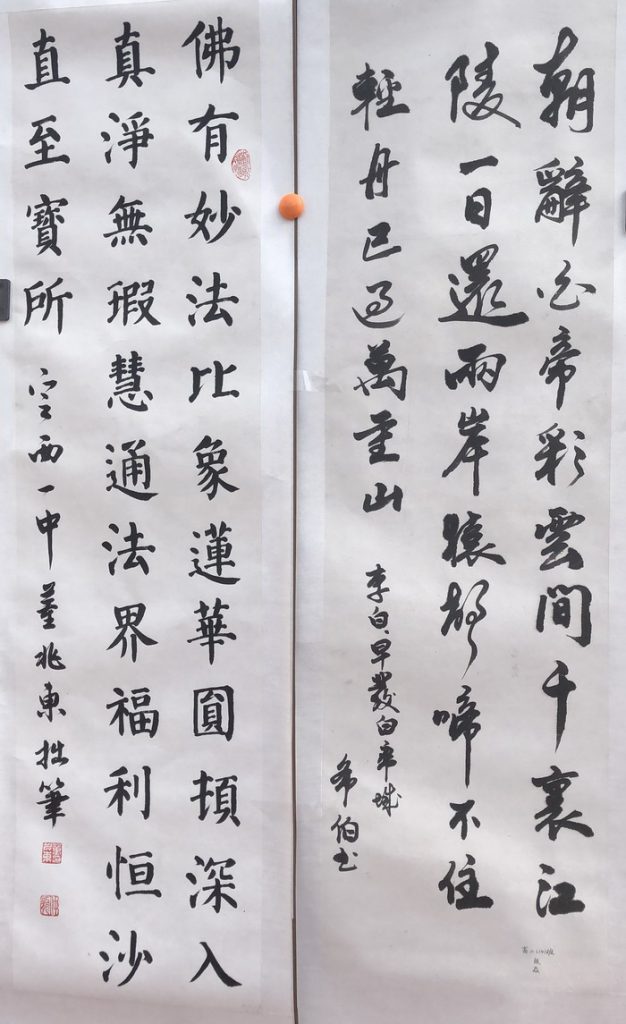 朝辭白帝彩雲間千裏江
陵一日還兩岸猿聲啼不住
輕舟已過萬重山
李白、早發白帝城
希伯书
佛有妙法比象蓮華圓頓深入
真淨無瑕慧通法界福利恒沙
直至寶所
定西一中董兆東拙筆